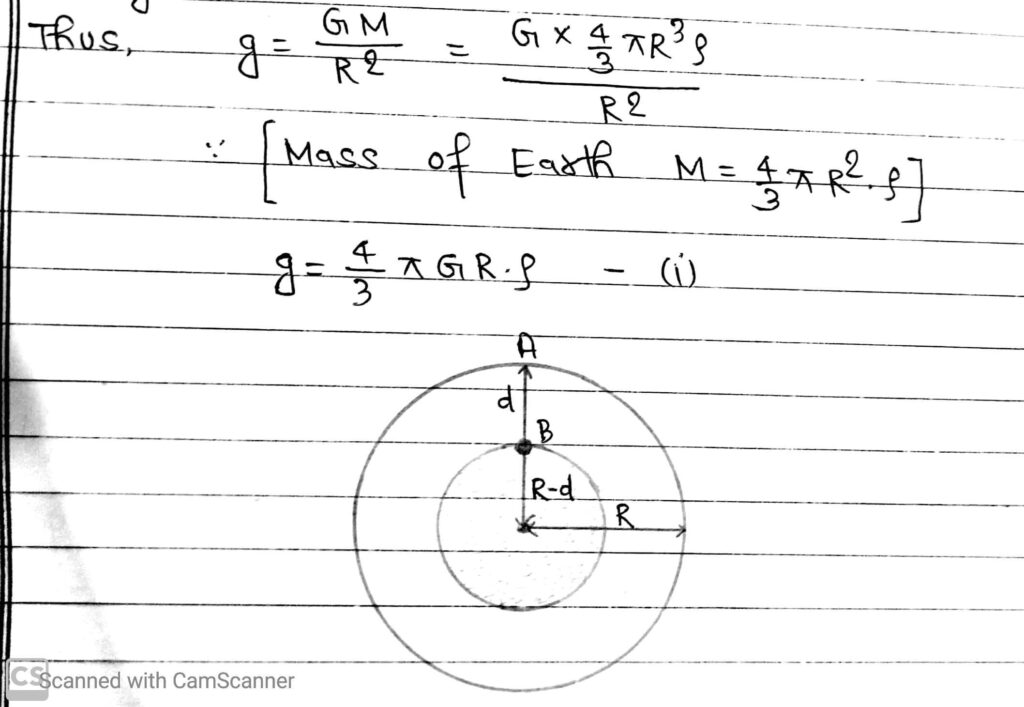 Thus, g = GM / R2 = G × 4/3 πR³ρ / R2
∵ [Mass of Earth M = 4/3 π R². ρ]
g = 4/3 π G R . ρ - (i)
A
d
B
R-d
R
CS Scanned with CamScanner